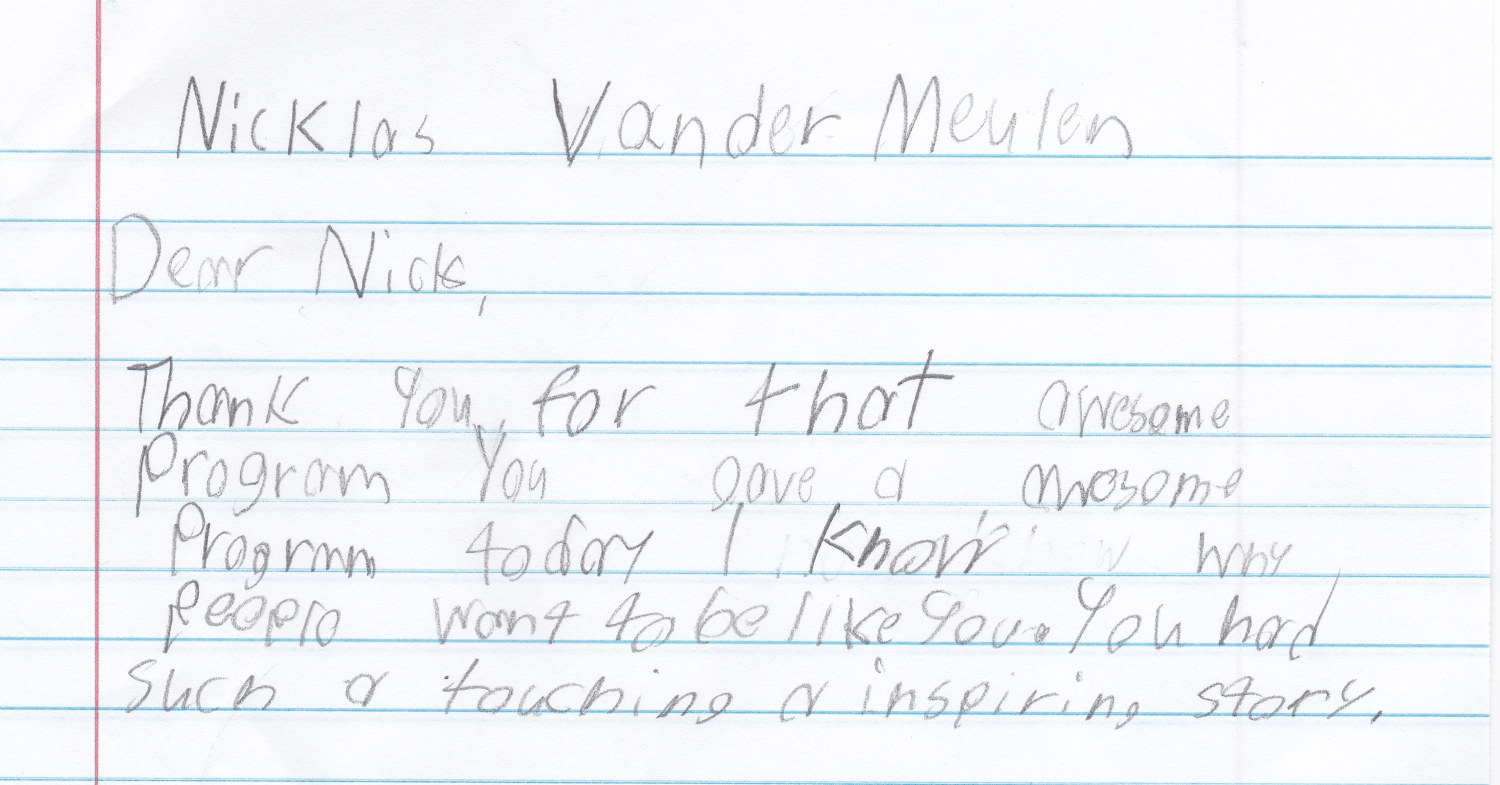 Nicklas VanderMeulen
Dear Nick,
Thank you for that awesome
Program you gave a awesome
Program today I know why
people want to be like you. You had
such a touching a inspiring story.